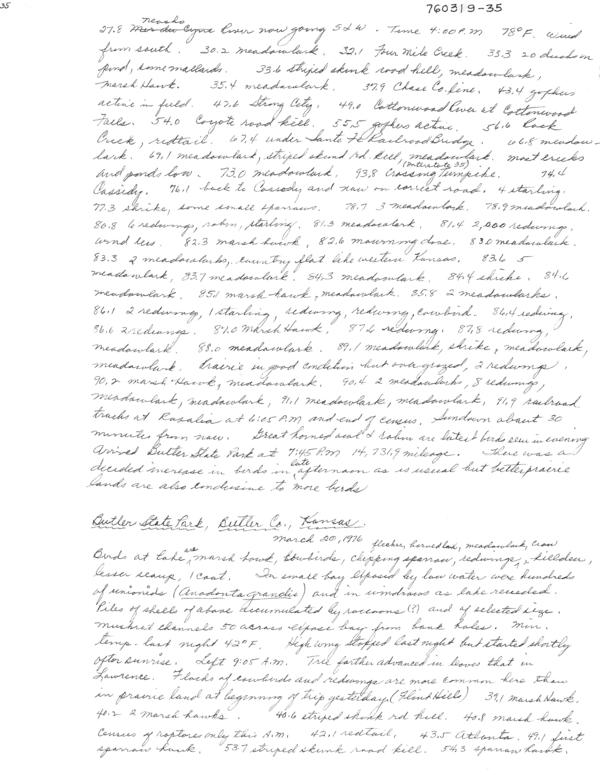 35
760319-35
neosho
27.8 River now going S & W. Time 4:00 P.M. 78°F. Wind
from south. 30.2 meadowlark. 32.1 Four Mile Creek. 33.3 20 ducks on
pond, some mallards. 33.6 striped skunk road kill, meadowlark,
marsh Hawk. 35.4 meadowlark. 37.9 Chase Co. line. 43.4 gophers
active in field. 47.6 Strong City. 49.0 Cottonwood River at Cottonwood
Falls. 54.0 Coyote road kill. 55.5 gophers active. 56.6 Rock
Creek, redtail. 67.4 under Santa Fe Railroad Bridge. 66.8 meadow-
lark. 69.1 meadowlark, striped skunk rd. kill, meadowlark. most creeks
(Interstate 35)
and ponds low. 73.0 meadowlark. 93.8 Crossing Turnpike. 74.4
Cassidy. 76.1 back to Cassody and now on correct road. 4 starling.
77.3 shrike, some small sparrows. 78.7 3 meadowlark. 78.9 meadowlark.
80.8 6 redwings, robin, starling. 81.3 meadowlark. 81.4 2,000 redwings.
wind less. 82.3 marsh hawk, 82.6 mourning dove. 83.0 meadowlark.
83.3 2 meadowlarks, country flat like western Kansas. 83.6 5
meadowlark, 83.7 meadowlark. 84.3 meadowlark. 84.4 shrike. 84.6
meadowlark. 85.1 marsh hawk, meadowlark. 85.8 2 meadowlarks.
86.1 2 redwing, 1 starling, redwing, redwing, cowbird. 86.4 redwing.
86.6 2 redwings. 87.0 Marsh Hawk. 87.6 redwing. 87.8 redwing,
meadowlark. 88.0 meadowlark. 89.1 meadowlark, shrike, meadowlark,
meadowlark. Prairie in good condition but overgrazed, 2 redwings.
90.2 marsh-Hawk, meadowlark. 90.4 2 meadowlarks, 8 redwings,
meadowlark, meadowlark, 91.1 meadowlark, meadowlark, 91.9 railroad
tracks at Rosalia at 6:05 P.M. and end of census. Sundown about 30
minutes from now. Great horned owl & robin are latest birds seen in evening
Arrived Butler State Park at 7:45 P.M. 14,731.9 mileage. There was a
late
decided increase in birds in afternoon as is usual but better prairie
lands are also conducive to more birds
Butler State Park, Butler Co., Kansas.
March 20, 1976 flicker, horned lark, meadowlark, crow
Bird at lake marsh hawk, cowbirds, chipping sparrow, redwings, killdeer,
lesser scaup, 1 Coot. In small bay exposed by low water were hundreds
of unionids (Anodonta grandis) and in windrows as lake receeded.
Piles of shells of above accumulated by raccoons (?) and of selected size.
muskrat channels 50 across expose bay from bank holes. Min.
temp. last night 42°F. High wing stopped last night but started shortly
after sunrise. Left 9:05 A.M. Tree farther advanced in leaves that in
Lawrence. Flocks of cowbirds and redwings are more common here than
in prairie land at beginning of trip yesterday. (Flint Hills) 39.1 Marsh Hawk.
40.2 2 marsh hawks. 40.6 striped skunk rd kill. 40.8 marsh hawk.
Census of raptores only this A.M. 42.1 redtail. 43.5 Atlanta. 49.1 first
sparrow hawk. 53.7 striped skunk road kill. 54.3 sparrow hawk.